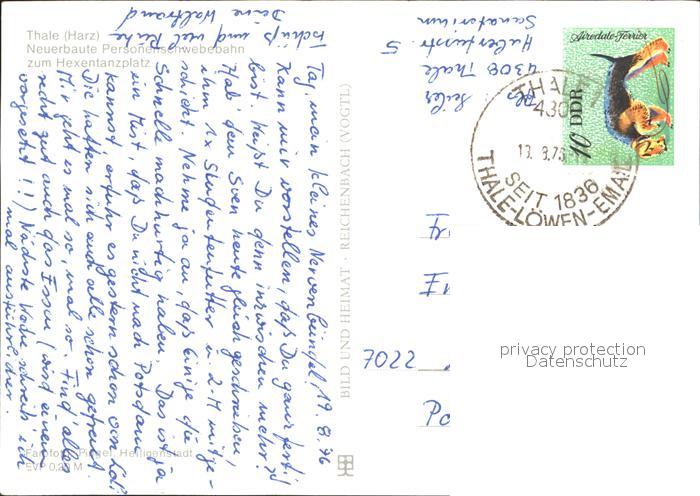 Thale (Harz)
Neuerbaute Personenschwebebahn
zum Hexentanzplatz
Tag mein kleines Nervenbündel! 19. 8. 76
Kann mir vorstellen, daß Du ganz fertig
bist. Weißt Du denn inzwischen mehr?
Hab' dem Sven heute gleich geschrieben,
ihm 1x Studentenfutter u. 2,-M mitge-
schickt. Nehme ja an, daß einige die
Schnelle nachhurtig haben. Das ist ja
ein Mist, daß Du nicht nach Potsdam
kannst, erfuhr es gestern schon von
Die hatten sich auch alle schon gefreut.
Mir geht es mal so, mal so. Find' alles
recht gut auch das Essen (wird einem
vorgesetzt!!) Nächste Woche schreib' ich
mal ausführlicher.
Tschüß und viel
Deine Waltraud
BILD UND HEIMAT · REICHENBACH (VOGTL)
Farbfoto:
Heiligenstadt
EVP 0,20 M
Abs.: Seiler
4308 Thale
Hubertusstr. 5
Sanatorium
Airedale-Terrier
10 DDR
THALE
430
19. 8. 76
SEIT 1836
THALE-LÖWEN-EMAIL
7022
privacy protection
Datenschutz